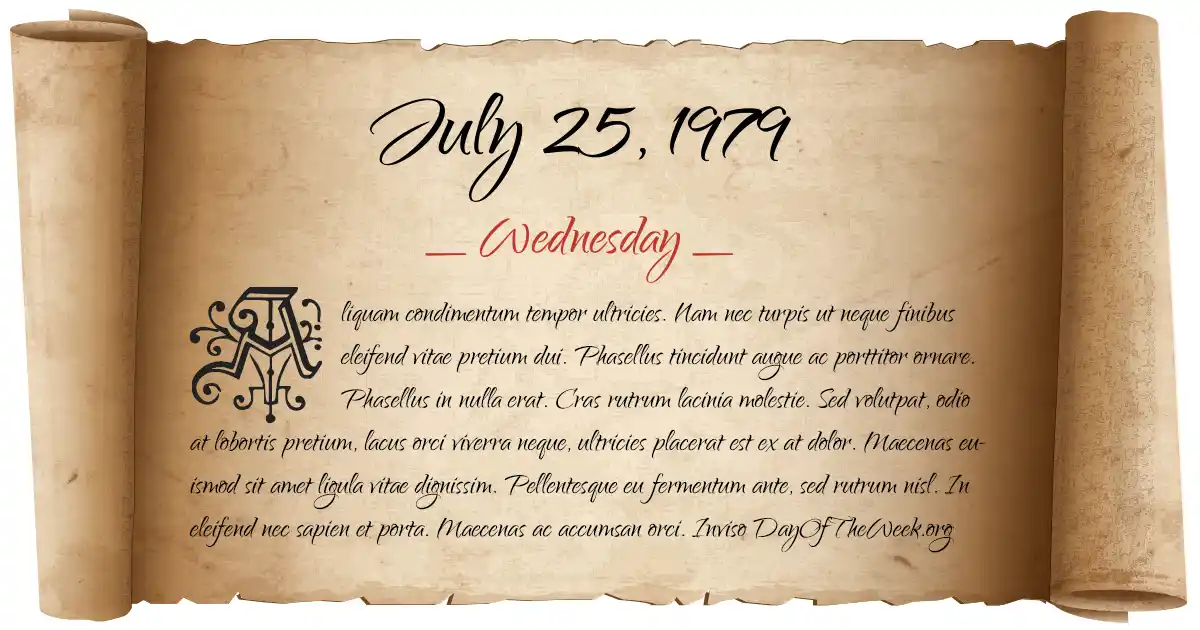 July 25, 1979
— Wednesday —
Aliquam condimentum tempor ultricies. Nam nec turpis ut neque finibus
eleifend vitae pretium dui. Phasellus tincidunt augue ac porttitor ornare.
Phasellus in nulla erat. Cras rutrum lacinia molestie. Sed volutpat, odio
at lobortis pretium, lacus orci viverra neque, ultricies placerat est ex at dolor. Maecenas eu-
ismod sit amet ligula vitae dignissim. Pellentesque eu fermentum ante, sed rutrum nisl. In
eleifend nec sapien et porta. Maecenas ac accumsan orci. Inviso DayOfTheWeek.org